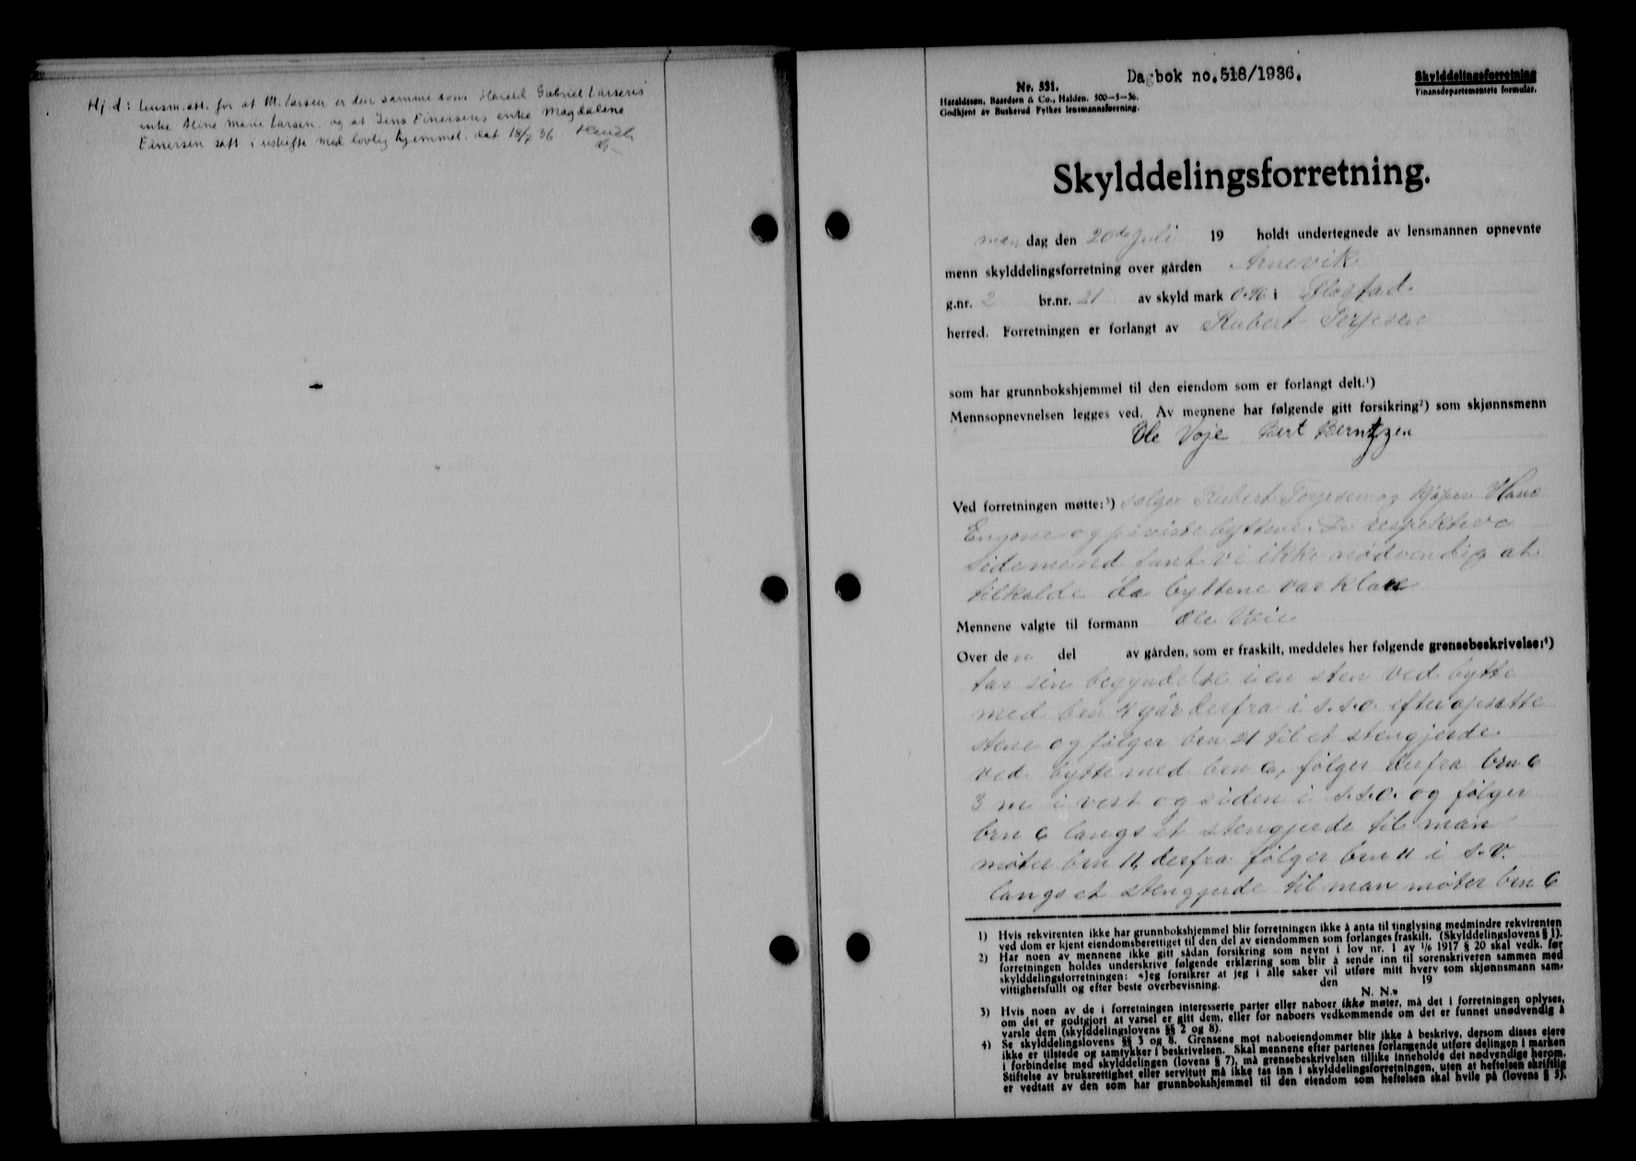 Hj.d: Lensm.att. for at M. Larsen er den samme som Harald Gabriel Larsens
enke Aline Marie Larsen, og at Jens Einersens enke Magdalene
Einersen satt i uskifte med lovlig hjemmel. dat 18/7 36
Dagbok no. 518/1936.
Nr. 531.
Haraldssen, Baardsen & Co., Halden. 500-5-36.
Godkjent av Buskerud Fylkes lensmannsforening.
Skylddelingsforretning
Finansdepartementets formular.
Skylddelingsforretning.
man dag den 20de juli 19 holdt undertegnede av lensmannen opnevnte
menn skylddelingsforretning over gården Arnevik
g.nr. 2 br.nr. 21 av skyld mark 0.96 i Flostad
herred. Forretningen er forlangt av Rubert Torjesen
som har grunnbokshjemmel til den eiendom som er forlangt delt.¹)
Mennsopnevnelsen legges ved. Av mennene har følgende gitt forsikring²) som skjønnsmenn
Ole Voje Bert Berntzen
Ved forretningen møtte:³) selger Rubert Torjesen og kjøper Hans
og påviste byttene. De respektive
sidemend fant vi ikke nødvendig at
tilkalde da byttene var klare
Mennene valgte til formann Ole Voie
Over de n del av gården, som er fraskilt, meddeles her følgende grensebeskrivelse:⁴)
tar sin begyndelse i en sten ved bytte
med brn 11 går derfra i s.s.o. efter opsatte
stene og følger brn 21 til et stengjerde
ved bytte med brn 6, følger derfra brn 6
3 m i vest og siden i s.s.o. og følger
brn 6 langs et stengjerde til man
møter brn 11, derfra følger brn 11 i s.v.
langs et stengjerde til man møter brn 6
1) Hvis rekvirenten ikke har grunnbokshjemmel blir forretningen ikke å anta til tinglysing medmindre rekvirenten
ved dom er kjent eiendomsberettiget til den del av eiendommen som forlanges fraskilt. (Skylddelingslovens § 1).
2) Har noen av mennene ikke gitt sådan forsikring som nevnt i lov nr. 1 av 1/6 1917 § 20 skal vedk. før
forretningen holdes underskrive følgende erklæring som blir å sende inn til sorenskriveren sammen med
skylddelingsforretningen: «Jeg forsikrer at jeg i alle saker vil utføre mitt hverv som skjønnsmann sam-
vittighetsfullt og efter beste overbevisning. den 19
N. N.»
3) Hvis noen av de i forretningen interesserte parter eller naboer ikke møter, må det i forretningen oplyses,
om det er godtgjort at varsel er gitt dem, eller for naboers vedkommende om det er funnet unødvendig å
varsle dem (skylddelingslovens §§ 2 og 8).
4) Se skylddelingslovens §§ 3 og 8. Grensene mot naboeiendommer blir ikke å beskrive, dersom disses eiere
ikke er tilstede og samtykker i beskrivelsen. Skal mennene efter partenes forlangende utføre delingen i marken
i forbindelse med skylddelingen (lovens § 7), må grensebeskrivelsen tillike inneholde det nødvendige herom.
Stiftelse av bruksrettighet eller servitutt må ikke tas inn i skylddelingsforretningen, uten at heftelsen skriftlig
er vedtatt av den som har grunnbokshjemmel til den eiendom som heftelsen skal hvile på (lovens § 5).